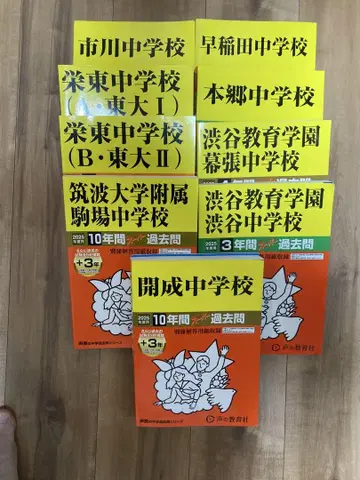 市川中学校
早稲田中学校
栄東中学校
(A・東大Ⅰ)
本郷中学校
栄東中学校
(B・東大Ⅱ)
渋谷教育学園
幕張中学校
筑波大学附属
駒場中学校
2025
年度用
10年間スーパー過去問
+3年
渋谷教育学園
渋谷中学校
2025
年度用
3年間スーパー過去問
声の教育社
開成中学校
2025
年度用
10年間スーパー過去問
+3年
声の教育社